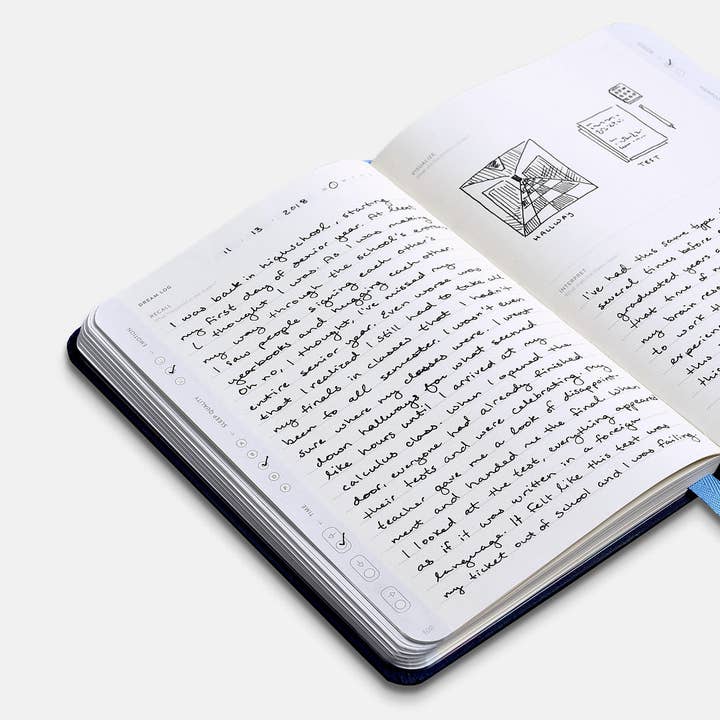 11 · 13 · 2018
DREAM LOG
RECALL
I was back in highschool, starting
my first day of senior year. At least
I thought I was. As I was making
my way through the school's
I saw people signing each other's
yearbooks and hugging each other.
Oh no, I thought, I've missed my
entire senior year. Even worse was
that I realized I still had to take all
my finals in classes that I hadn't
been to all semester. I wasn't even
sure where my classes were. I went
down hallways for what seemed
like hours until I arrived at my
calculus class. When I opened the
door, everyone had already finished
their tests and were celebrating. My
teacher gave me a look of disappoint-
ment and handed me the final. When
I looked at the test, everything appeared
as if it was written in a foreign
language. It felt like this test was
my ticket out of school and I was failing
EMOTION
SLEEP QUALITY
TIME
100
VISUALIZE
HALLWAY
TEST
INTERPRET
I've had this same type
several times before
graduated years
that time of
my brain
to work
this
this